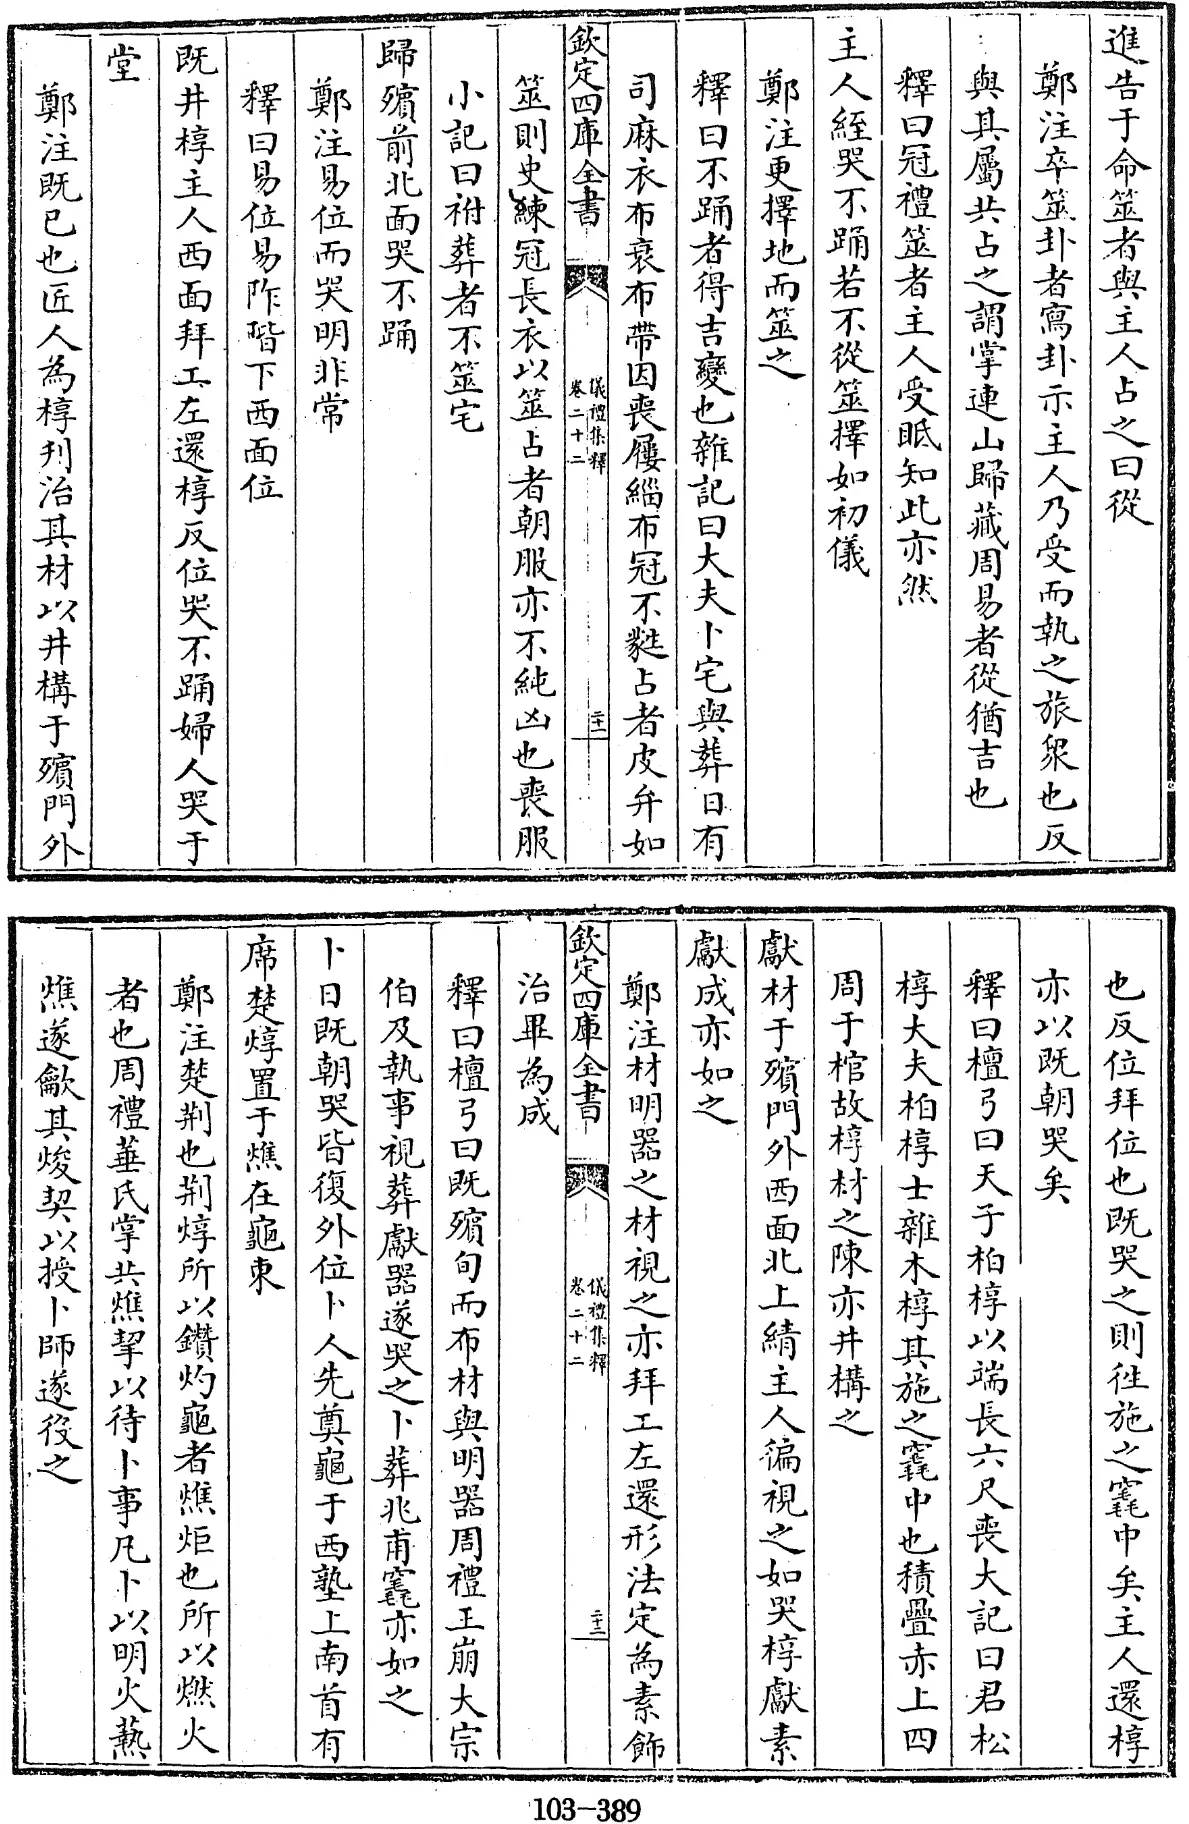 進告于命筮者與主人占之曰從
鄭注卒筮卦者寫卦示主人乃受而執之旅衆也反
與其屬共占之謂掌連山歸藏周易者從猶吉也
釋曰冠禮筮者主人受眡知此亦然
主人絰哭不踊若不從筮擇如初儀
鄭注更擇地而筮之
釋曰不踊者得吉變也雜記曰大夫卜宅與葬日有
司麻衣布衰布帶因喪屨緇布冠不蕤占者皮弁如
欽定四庫全書
儀禮集釋
卷二十二
二十一
筮則史練冠長衣以筮占者朝服亦不純凶也喪服
小記曰祔葬者不筮宅
歸殯前北面哭不踊
鄭注易位而哭明非常
釋曰易位易阼階下西面位
既井椁主人西面拜工左還椁反位哭不踊婦人哭于
堂
鄭注既已也匠人為椁刋治其材以井構于殯門外
也反位拜位也既哭之則徃施之窆中矣主人還椁
亦以既朝哭矣
釋曰檀弓曰天子柏椁以端長六尺喪大記曰君松
椁大夫柏椁士雜木椁其施之窆中也積疊亦上四
周于棺故椁材之陳亦井構之
獻材于殯門外西面北上綪主人徧視之如哭椁獻素
獻成亦如之
鄭注材明器之材視之亦拜工左還形法定為素飾
欽定四庫全書
儀禮集釋
卷二十二
二十二
治畢為成
釋曰檀弓曰既殯旬而布材與明器周禮王崩大宗
伯及執事視葬獻器遂哭之卜葬兆甫竁亦如之
卜日既朝哭皆復外位卜人先奠龜于西塾上南首有
席楚焞置于燋在龜東
鄭注楚荆也荆焞所以鑽灼龜者燋炬也所以燃火
者也周禮菙氏掌共燋挈以待卜事凡卜以明火爇
燋遂龡其焌契以授卜師遂役之
103-389